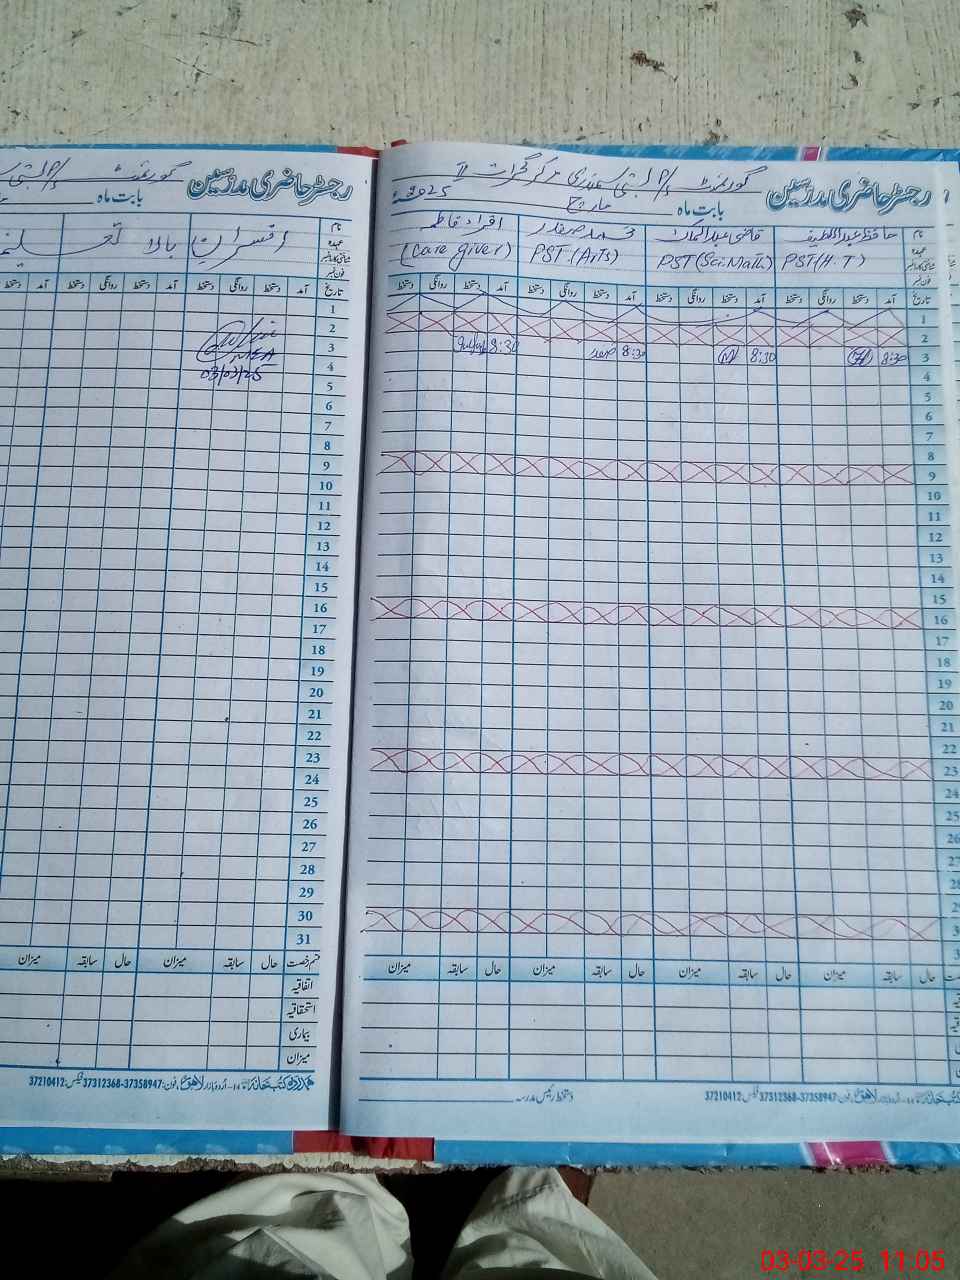 رجسٹر حاضری مدرسین
گورنمنٹ P/S بستی
بابت ماہ
افسران بالا
نام
عہدہ
تاریخ آمد دستخط روانگی دستخط آمد دستخط روانگی دستخط
1
2
3
MEA
4
03/03/25
5
6
7
8
9
10
11
12
13
14
15
16
17
18
19
20
21
22
23
24
25
26
27
28
29
30
31
قسم رخصت حال سابقہ میزان حال سابقہ میزان
اتفاقیہ
استحقاقیہ
بیماری
میزان
فون: 37358947-37312368 فیکس: 37210412
رجسٹر حاضری مدرسین
گورنمنٹ P/S بستی مرکز گجرات II
بابت ماہ مارچ 2025ء
نام حافظ عبداللطیف قاضی عبدالمالک محمد صفدر اقراء فاطمہ
عہدہ PST (H.T) PST (Sci.Math) PST (Arts) (Care giver)
تاریخ آمد دستخط روانگی دستخط آمد دستخط روانگی دستخط آمد دستخط روانگی دستخط آمد دستخط روانگی دستخط
1
2
3 8:30 8:30 8:30 8:30
4
5
6
7
8
9
10
11
12
13
14
15
16
17
18
19
20
21
22
23
24
25
26
27
28
حال سابقہ میزان حال سابقہ میزان حال سابقہ میزان حال سابقہ میزان
فون: 37358947-37312368 فیکس: 37210412
دستخط رئیس مدرسہ
03-03-25 11:05